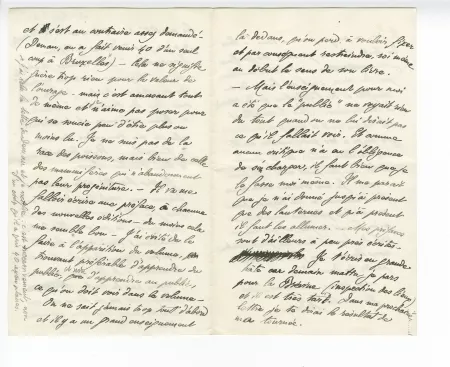 et c'est au contraire assez demandé.
(Deman, en a fait venir 40 d'un seul
coup à Bruxelles) — cela ne signifie
rien pour la valeur de
l'ouvrage mais c'est amusant tout
de même et n'aime pas poser pour
qui se soucie peu d'être plus ou
moins lu. Je ne suis pas de la
race des poissons, mais bien de celle
des mammifères qui n'abandonnent
pas leur progéniture. — Il va me
falloir écrire une préface, à chacune
des nouvelles éditions — du moins cela
me semble bon — J'ai évité de la
faire à l'apparition du volume,
préférable d'apprendre du
public, que d'apprendre au public,
ce qu'on doit voir dans le volume —
On ne sait jamais trop tout d'abord
et il y a un grand enseignement
là dedans, qu'on perd à vouloir fixer
et par conséquent restreindre soi même
au début le sens de son livre.
— Mais l'enseignement pour moi
a été que le "public" ne voyait rien
du tout quand on ne lui disait pas
ce qu'il fallait voir. Et comme
aucun critique n'a eu l'obligeance
de s'en charger, il faut bien que je
le fasse moi même. Il me paraît
que je n'ai donné jusqu'à présent
que des lanternes et qu'à présent
il faut les allumer. — Mes préfaces
sont d'ailleurs à peu près écrites —
Je t'écris en grande
hâte car demain matin, je pars
pour la (inspection des lieux)
et il est très tard. Dans ma prochaine
lettre je te dirai le résultat de
ma tournée.